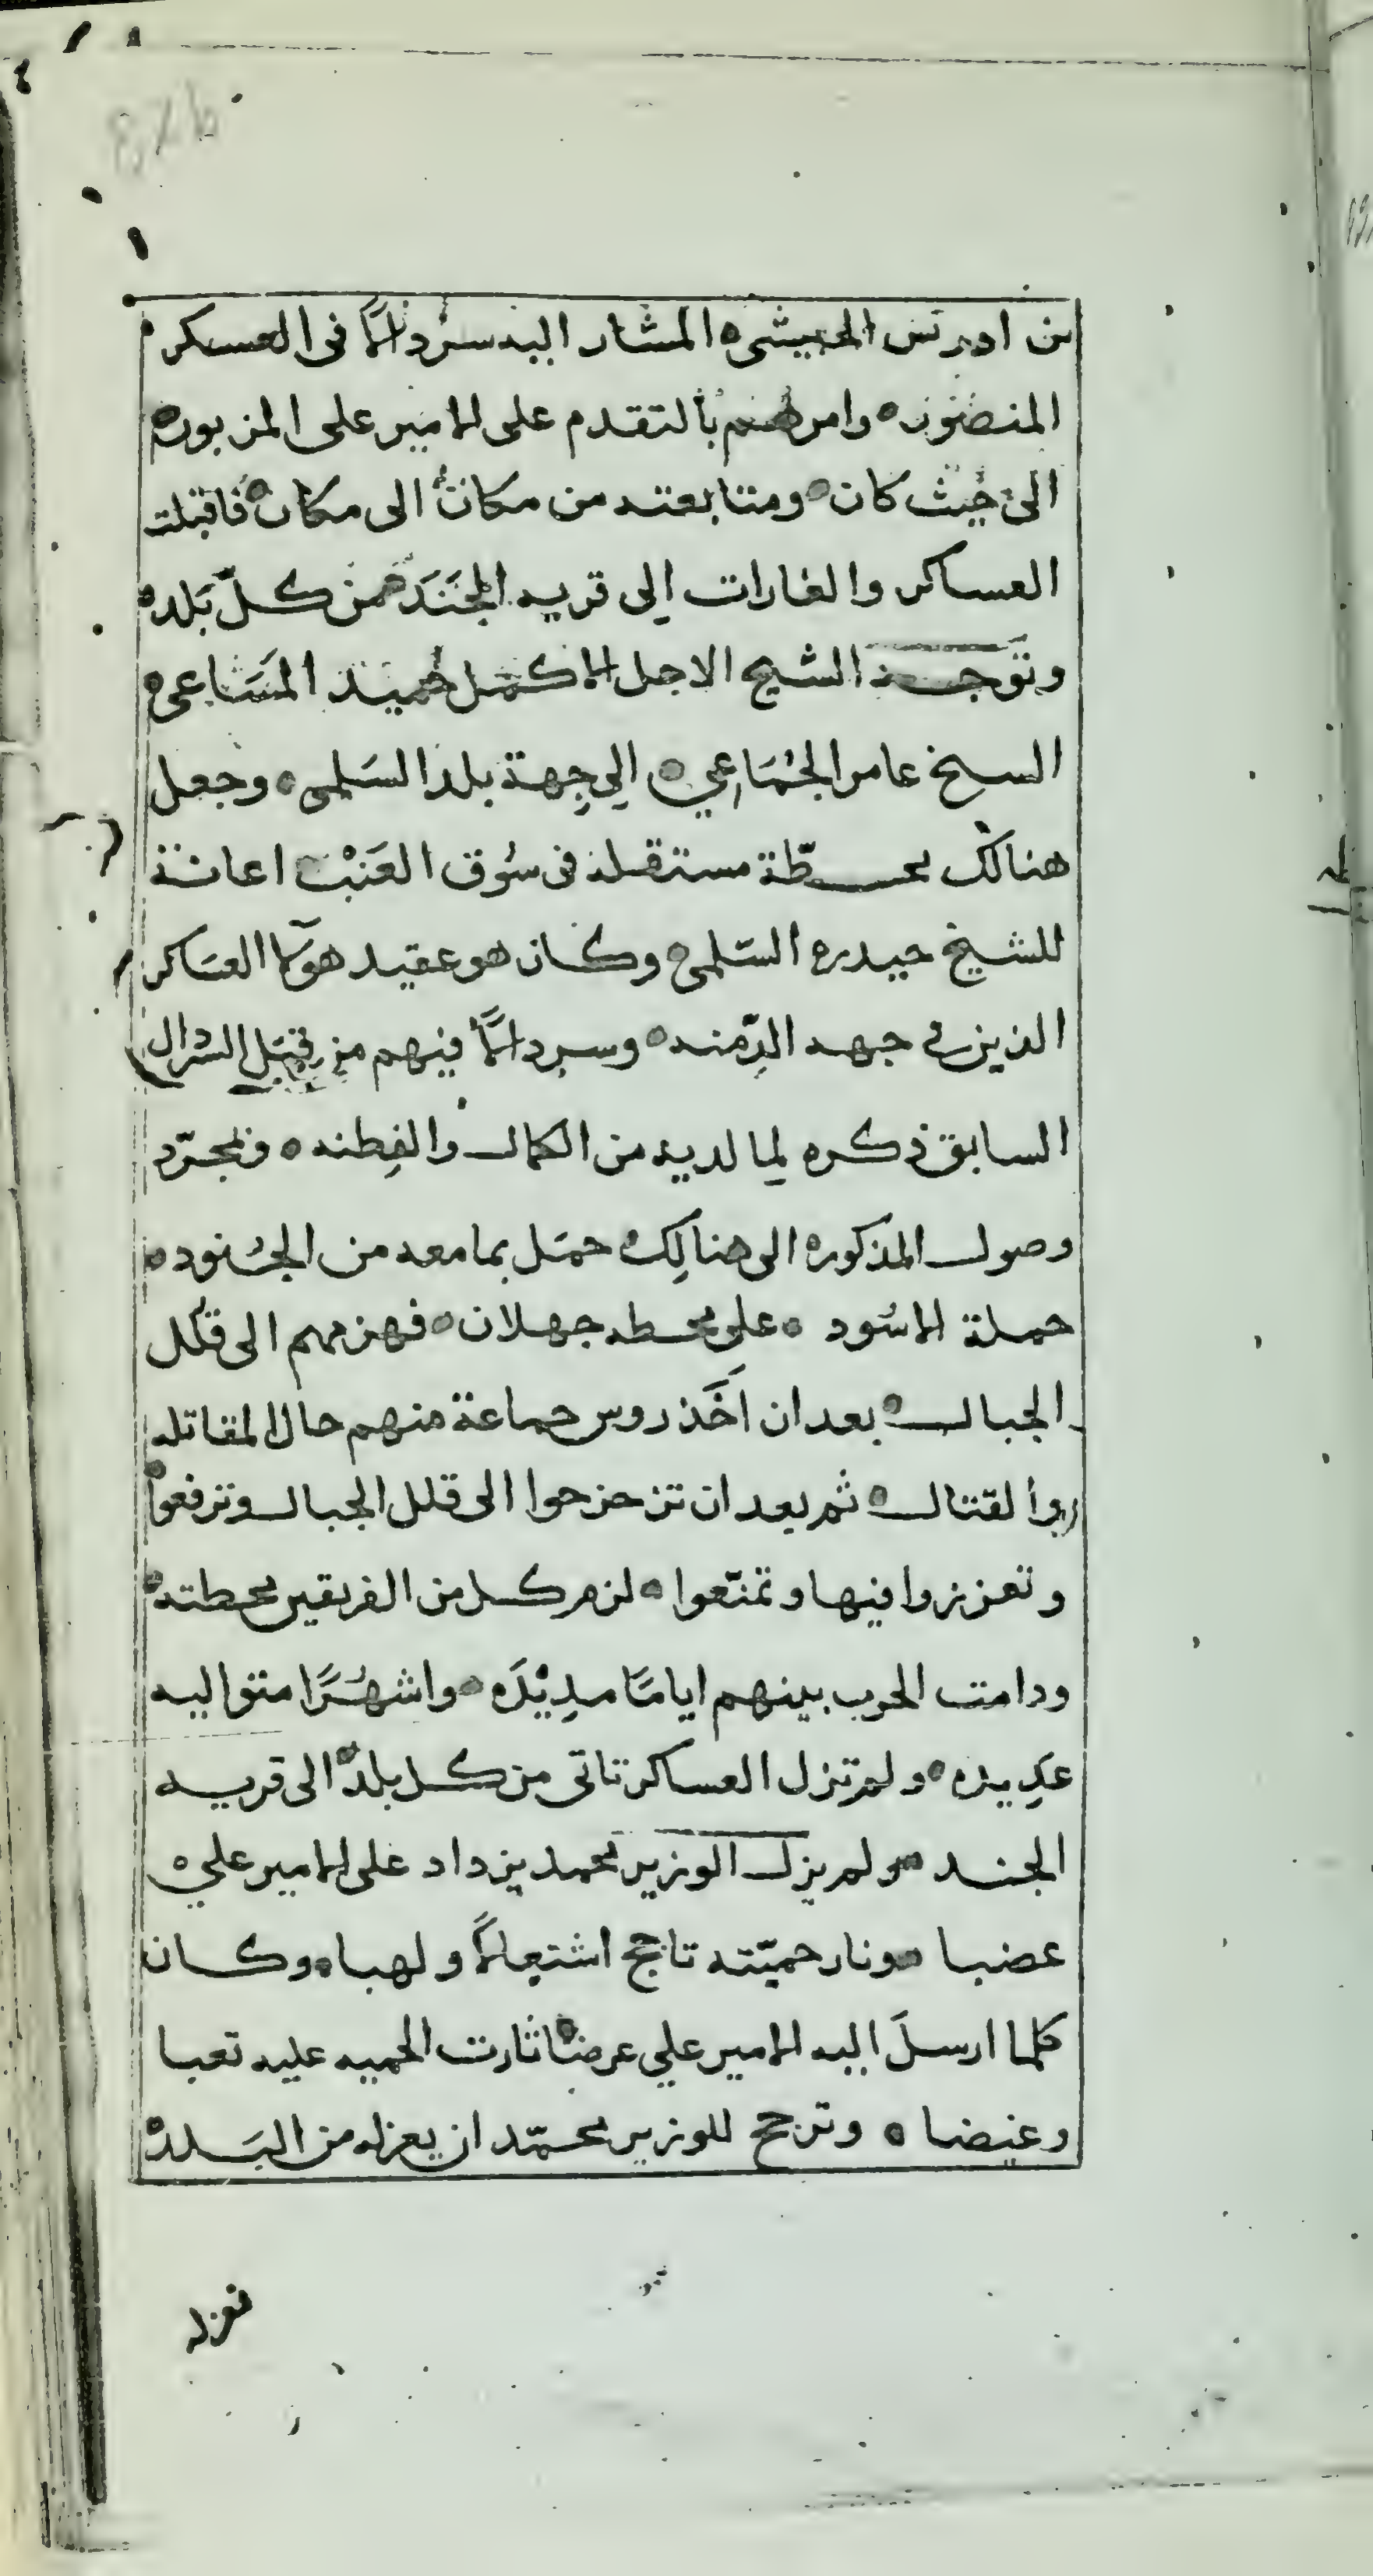 بن ادريس الحبيشي المشار اليه سردالاً في العسكر
المنصور وامرهم بالتقدم على الامير على المزبور
الى حيث كان ومتابعته من مكان الى مكان فاقبلت
العساكر والغارات الى قريه الجَنَد من كلّ بَلد
وتوجه الشيخ الاجل الاكمل حميد المسَاعي
السيخ عامر الجُمَاعِي الى جِهة بلد السَلمي وجعل
هنالك محطّة مستقله في سُوق العَنبْ اعانة
للشيخ حيدره السّلمي وكان هو عقيد هوَلآ العسَاكر
الذين في جهه الدِّمنه وسردالاً فيهم من قِبَل السردال
السابق ذكره لِما لديه من الكمال والفِطنه وبمجرّد
وصول المذكور الى هنالِك حمَل بما معه من الجُنود
حملة الاسُود على محطه جهلان فهزمهم الى قُلل
الجبال بعد ان اَخَذ روس جماعة منهم حال المقاتله
والقتال ثم بعد ان تزحزحوا الى قلل الجبال وترفعوا
وتعززوا فيها وتمنّعوا لزم كل من الفريقين محطته
ودامت الحرب بينهم ايامًا مدِيْدَه واشهُرًا متواليه
عدِيده ولم تزل العساكر تاتي من كل بلد الى قريه
الجند ولم يزل الوزير محمد يزداد على الامير علي
غضبا ونار حميّته تاجج اشتعالاً ولهبا وكان
كلما ارسلَ اليه الامير علي عرضًا ثارت الحميه عليه تعبا
وغيضا وترجح للوزير محمّد ان يعزله من البَلد